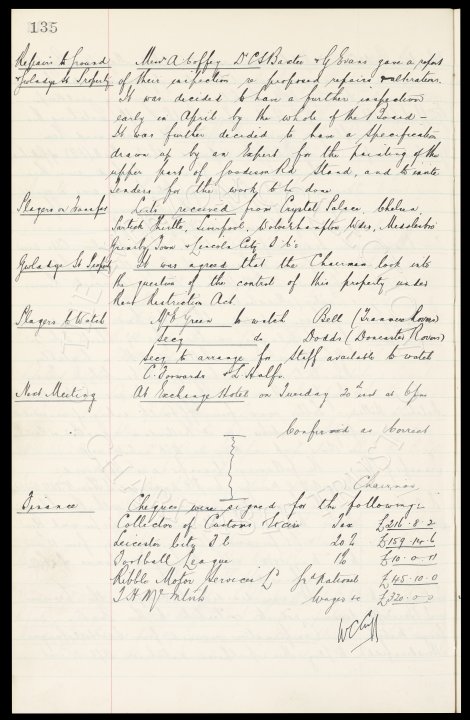 135
Repairs to Ground
& Gwladys St Property
Messrs A Coffey Dr C S Baxter & G Evans gave a report
of their inspection re proposed repairs & alterations.
It was decided to have a further inspection
early in April by the whole of the Board —
It was further decided to have a specification
drawn up by an Expert for the painting of the
upper part of Goodison Rd Stand, and to invite
tenders for the work to be done
Players on Transfer
Lists received from Crystal Palace, Chelsea
Partick Thistle, Liverpool, Wolverhampton Wdrs, Middlesbro
Grimsby Town & Lincoln City F.C's
Gwladys St Property
It was agreed that the Chairman look into
the question of the control of this property under
Rent Restriction Act
Players to Watch
Mr Green to watch Bell (Tranmere Rovers)
Secy do Dodds (Doncaster Rovers)
Secy to arrange for Staff available to watch
C. Forwards & L. Halfs.
Next Meeting
At Exchange Hotel on Tuesday 20th inst at 6pm
Confirmed as Correct
Chairman
Finance
Cheques were signed for the following:
Collector of Customs & Excise Tax £216.8.2
Leicester City F.C 20% £159.14.6
Football League 1% £10.0.11
Ribble Motor Services Ld Gd National £45.10.0
T.H. McIntosh Wages &c £320.0.0
W C Cuff